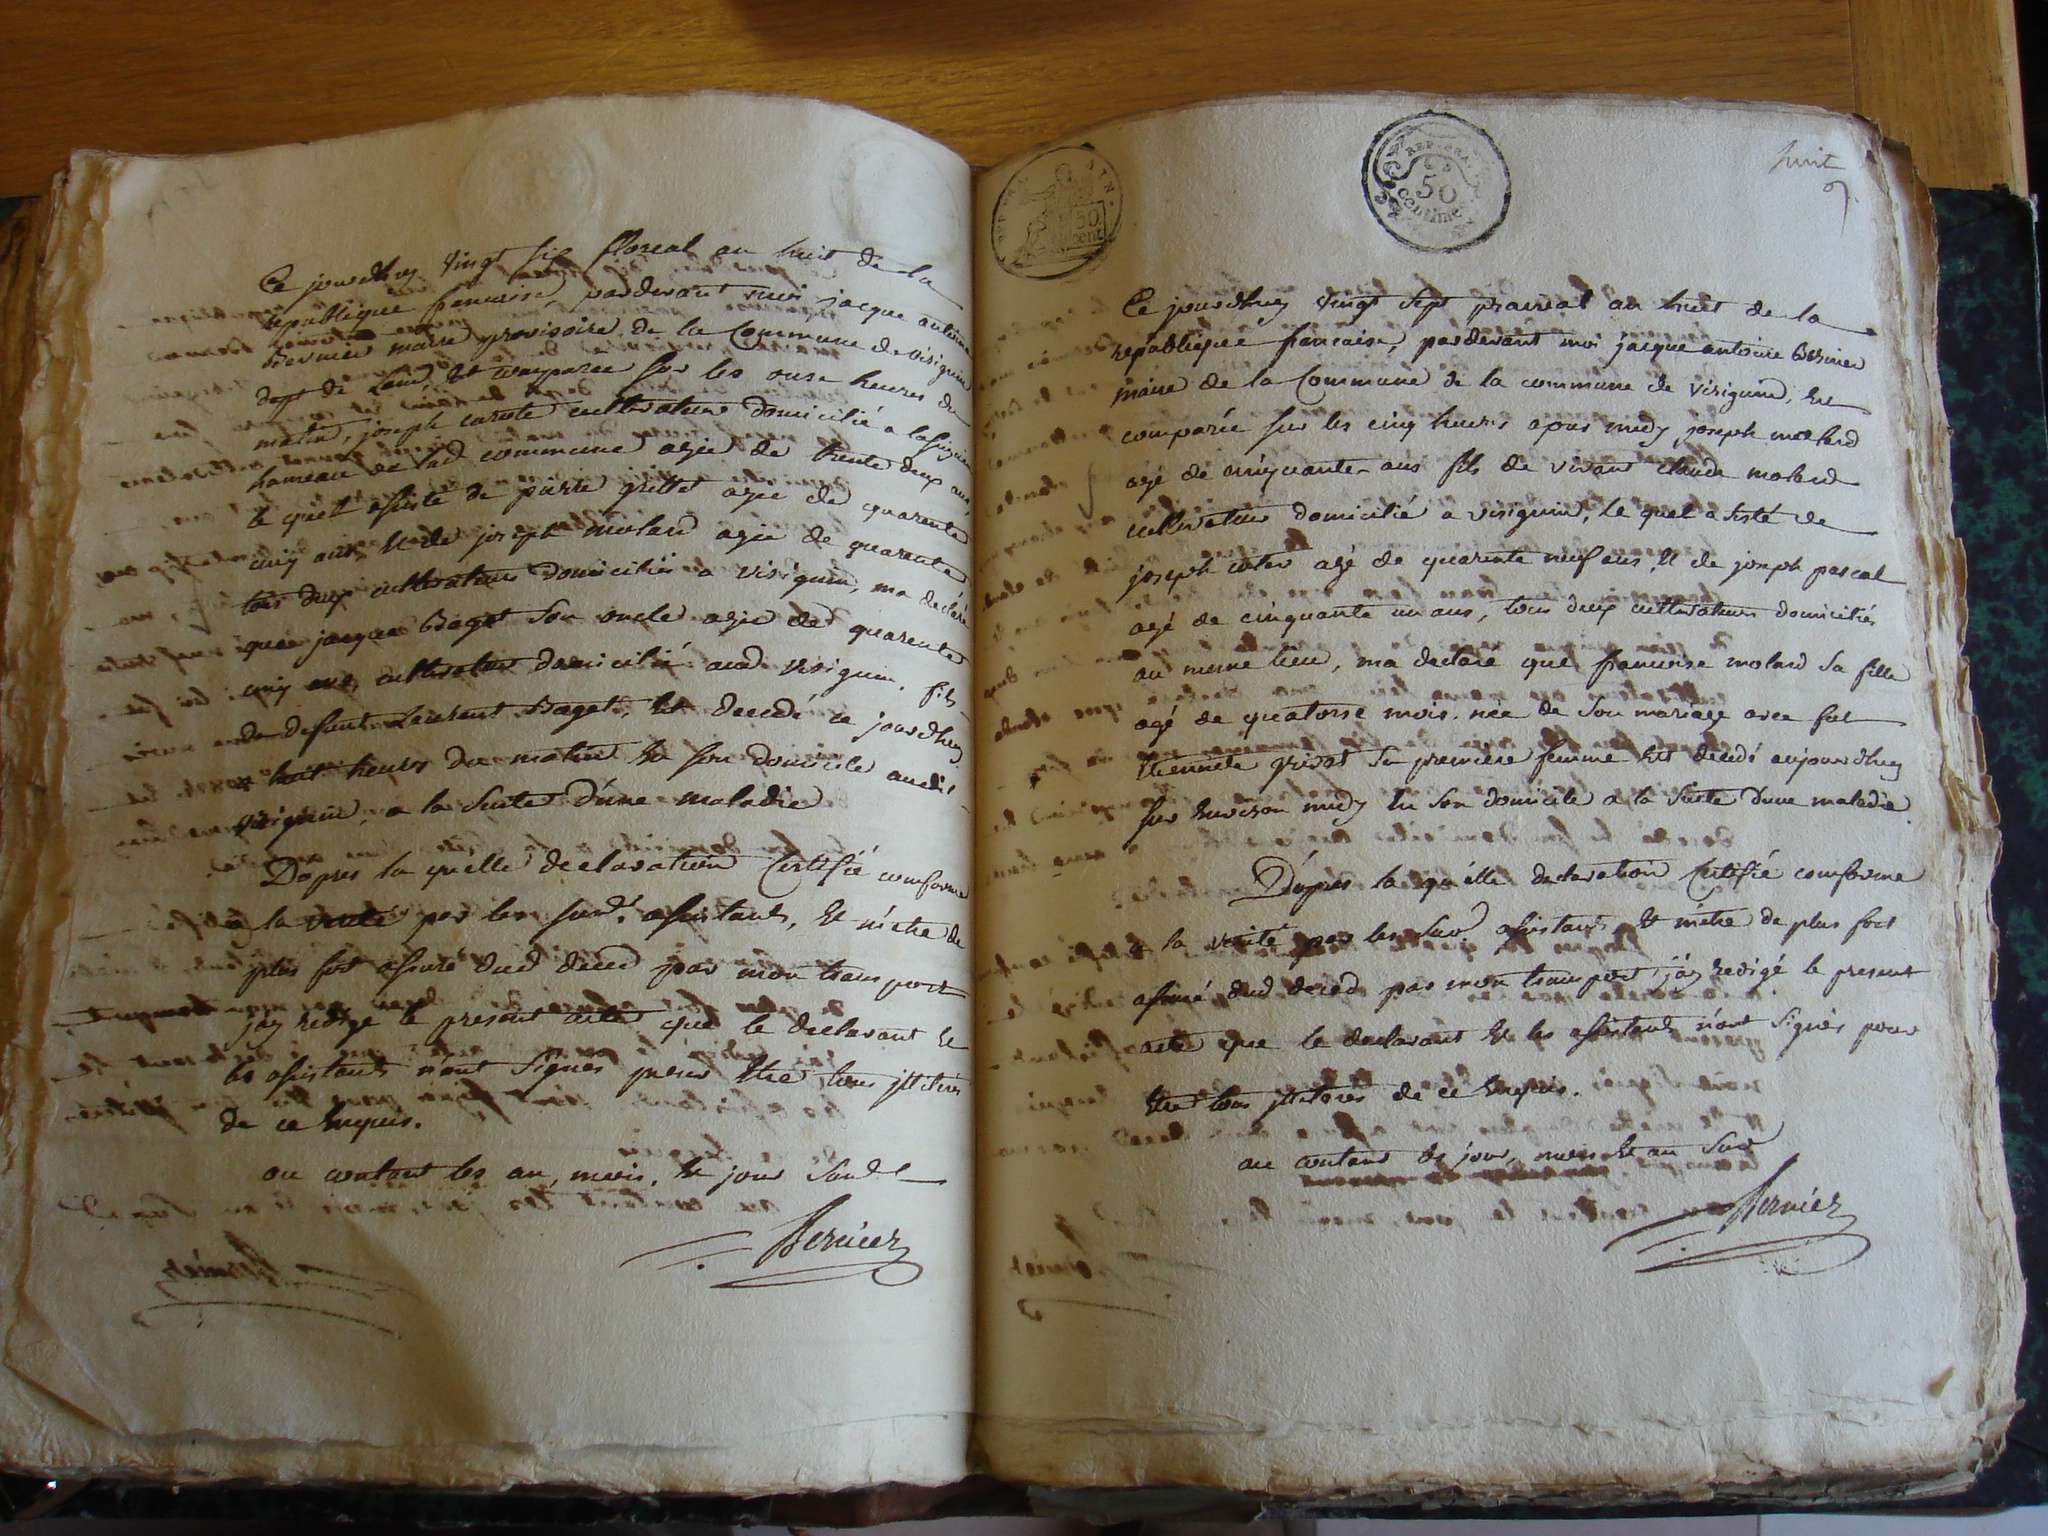 Ce jourdhuy vingt six floreal an huit de la
republique francaise, pardevant moi jacque antoine
Bernier maire provisoire de la Commune de visignin
dept de Lain, Est comparue sur les onse heures du
matin, joseph cultivateur domicilié a
hameau de lad commune agée de trente deux ans,
le quel assisté de pierre grillet agee de quarente
cinq ans, Et de joseph molard agée de quarante
tous deux cultivateurs domiciliés a visignin, ma declaré
que jacques Baget son oncle agée de quarente
cinq ans, cultivateur domicilié aud visignin, fils
de defunt Laurent Baget, Est decedé ce jourdhuy
a huit heures du matin En son domicile audit
visignin, a la suite d'une maladie
Dapres la quelle declaration Certifié conforme
a la verité par les susd. assistants, Et m'etre de
plus fort assuré dud deced par mon transport
j'ay Redigé le present acte que le declarant Et
les assistants n'ont signés pour Etre tous jllitirés
de ce Enquis.
au contant les an, mois, Et jour susd
Bernier
REP. FRA.
50
cent
REP. FRA.
50
Centimes
huit
Ce jourdhuy vingt sept prairial an huit de la
republique francaise, pardevant moi jacque antoine Bernier
maire de la Commune de la commune de visignin, Est
comparée sur les cinq heures apres midy joseph molard
agé de cinquante ans fils de vivant claude molard
cultivateur domicilié a visignin, le quel assisté de
joseph agé de quarente neuf ans, Et de joseph pascal
agé de cinquante un ans, tous deux cultivateurs domiciliés
au meme lieu, ma declaré que francoise molard sa fille
agé de quatorse mois, née de son mariage avec fut
Etiennete sa premiere femme Est decedé aujourdhuy
sur Environ midy En son domicile a la suite dune maladie.
D'apres la quelle declaration Certifié conforme
a la verité par les susd. assistants Et m'etre de plus fort
assuré dud deced par mon transport, j'ay Redigé le present
acte que le declarant Et les assistants n'ont signés pour
Etre tous jllitirés de ce Enquis.
au contant les jour, mois Et an susd
Bernier